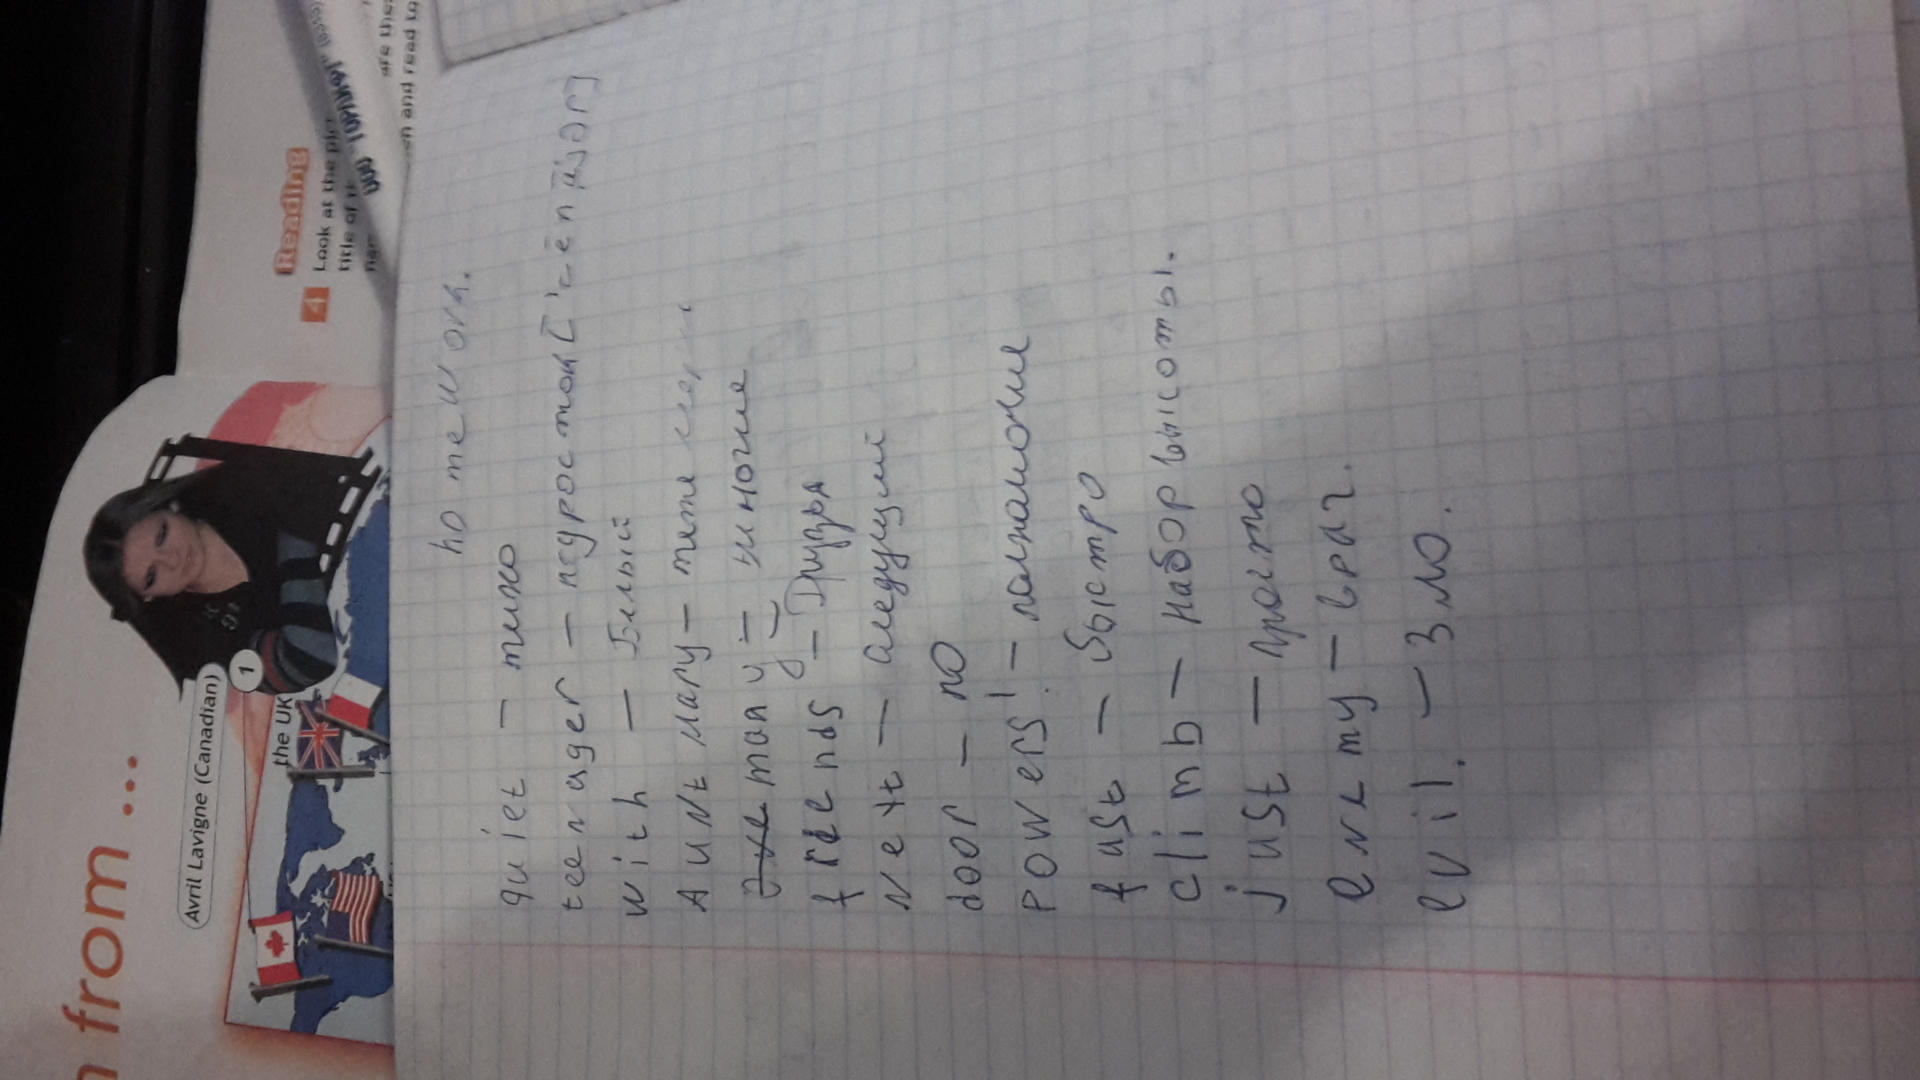 from ...
Avril Lavigne (Canadian)
1
the UK
Reading
4 Look at the
title of
are
and read to
ООО "ГОРЛИФТ" (8313)
homework.
quiet – тихо
teenager – подросток
with – Белый
Aunt Mary – тетя
many – многие
friends – Друзья
Next – Следущий
door – по
powers! – полномочие
fast – быстро
climb – набор высоты.
just – просто
enemy – враг.
evil. – Зло.